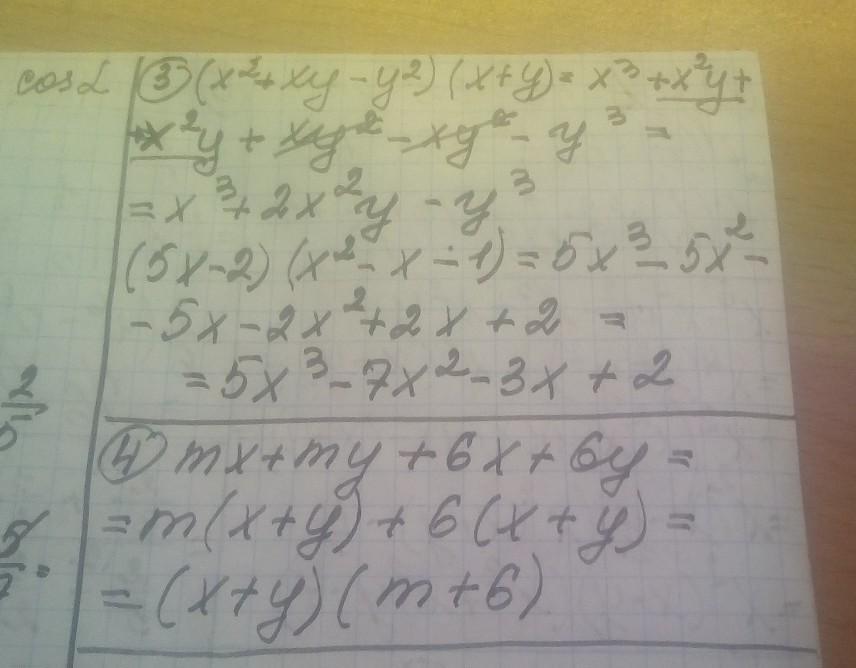 cos α
③ (x²+xy-y²)(x+y)= x³+x²y+
+x²y + xy² - xy² - y³ =
= x³+2x²y - y³
(5x-2)(x²-x-1)=5x³-5x²-
-5x-2x²+2x+2 =
=5x³-7x²-3x+2
2
5
④ mx+my+6x+6y=
=m(x+y)+6(x+y)=
=(x+y)(m+6)